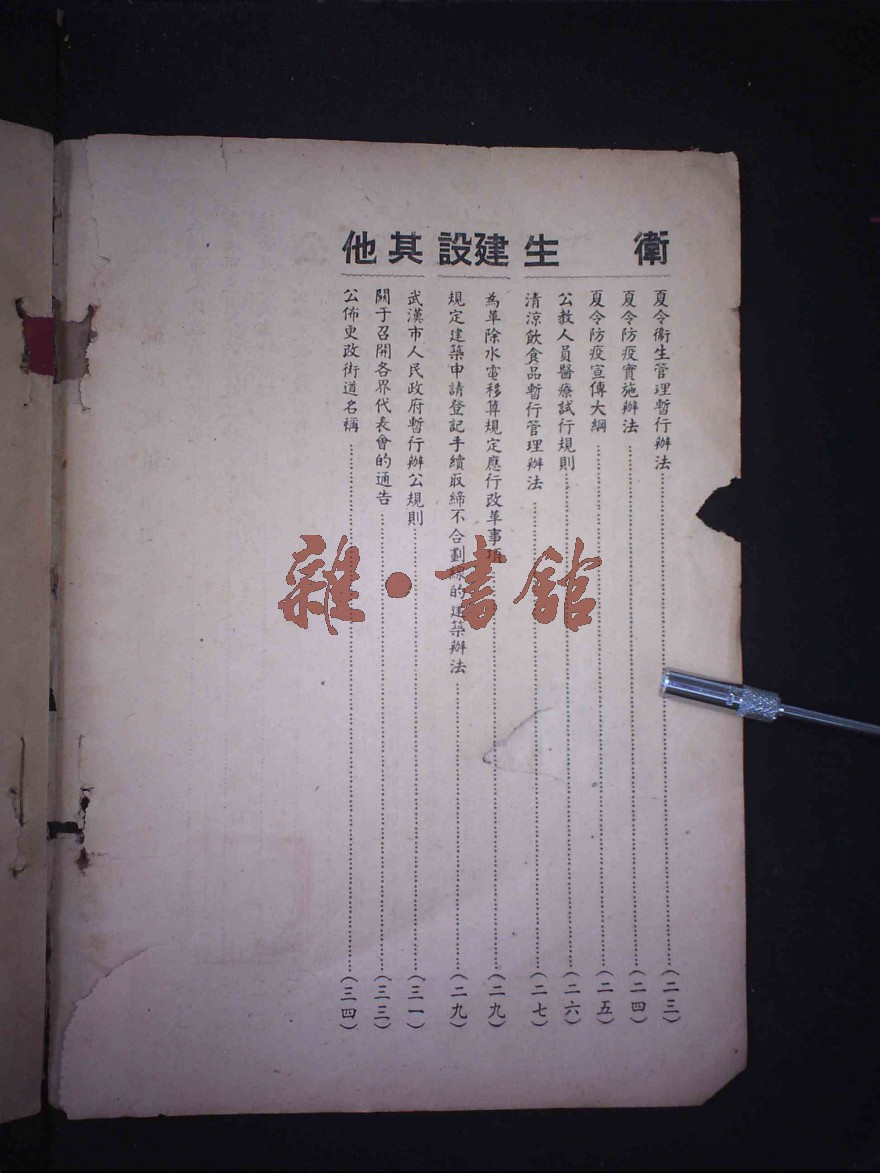 衛生
夏令衞生管理暫行辦法……(二三)
夏令防疫實施辦法……(二四)
夏令防疫宣傳大綱……(二五)
公教人員醫療試行規則……(二六)
清涼飲食品暫行管理辦法……(二七)
建設
為革除水電移算規定應行改革事項……(二九)
規定建築申請登記手續取締不合劃線的建築辦法……(二九)
其他
武漢市人民政府暫行辦公規則……(三一)
關于召開各界代表會的通告……(三三)
公佈更改街道名稱……(三四)
雜·書館